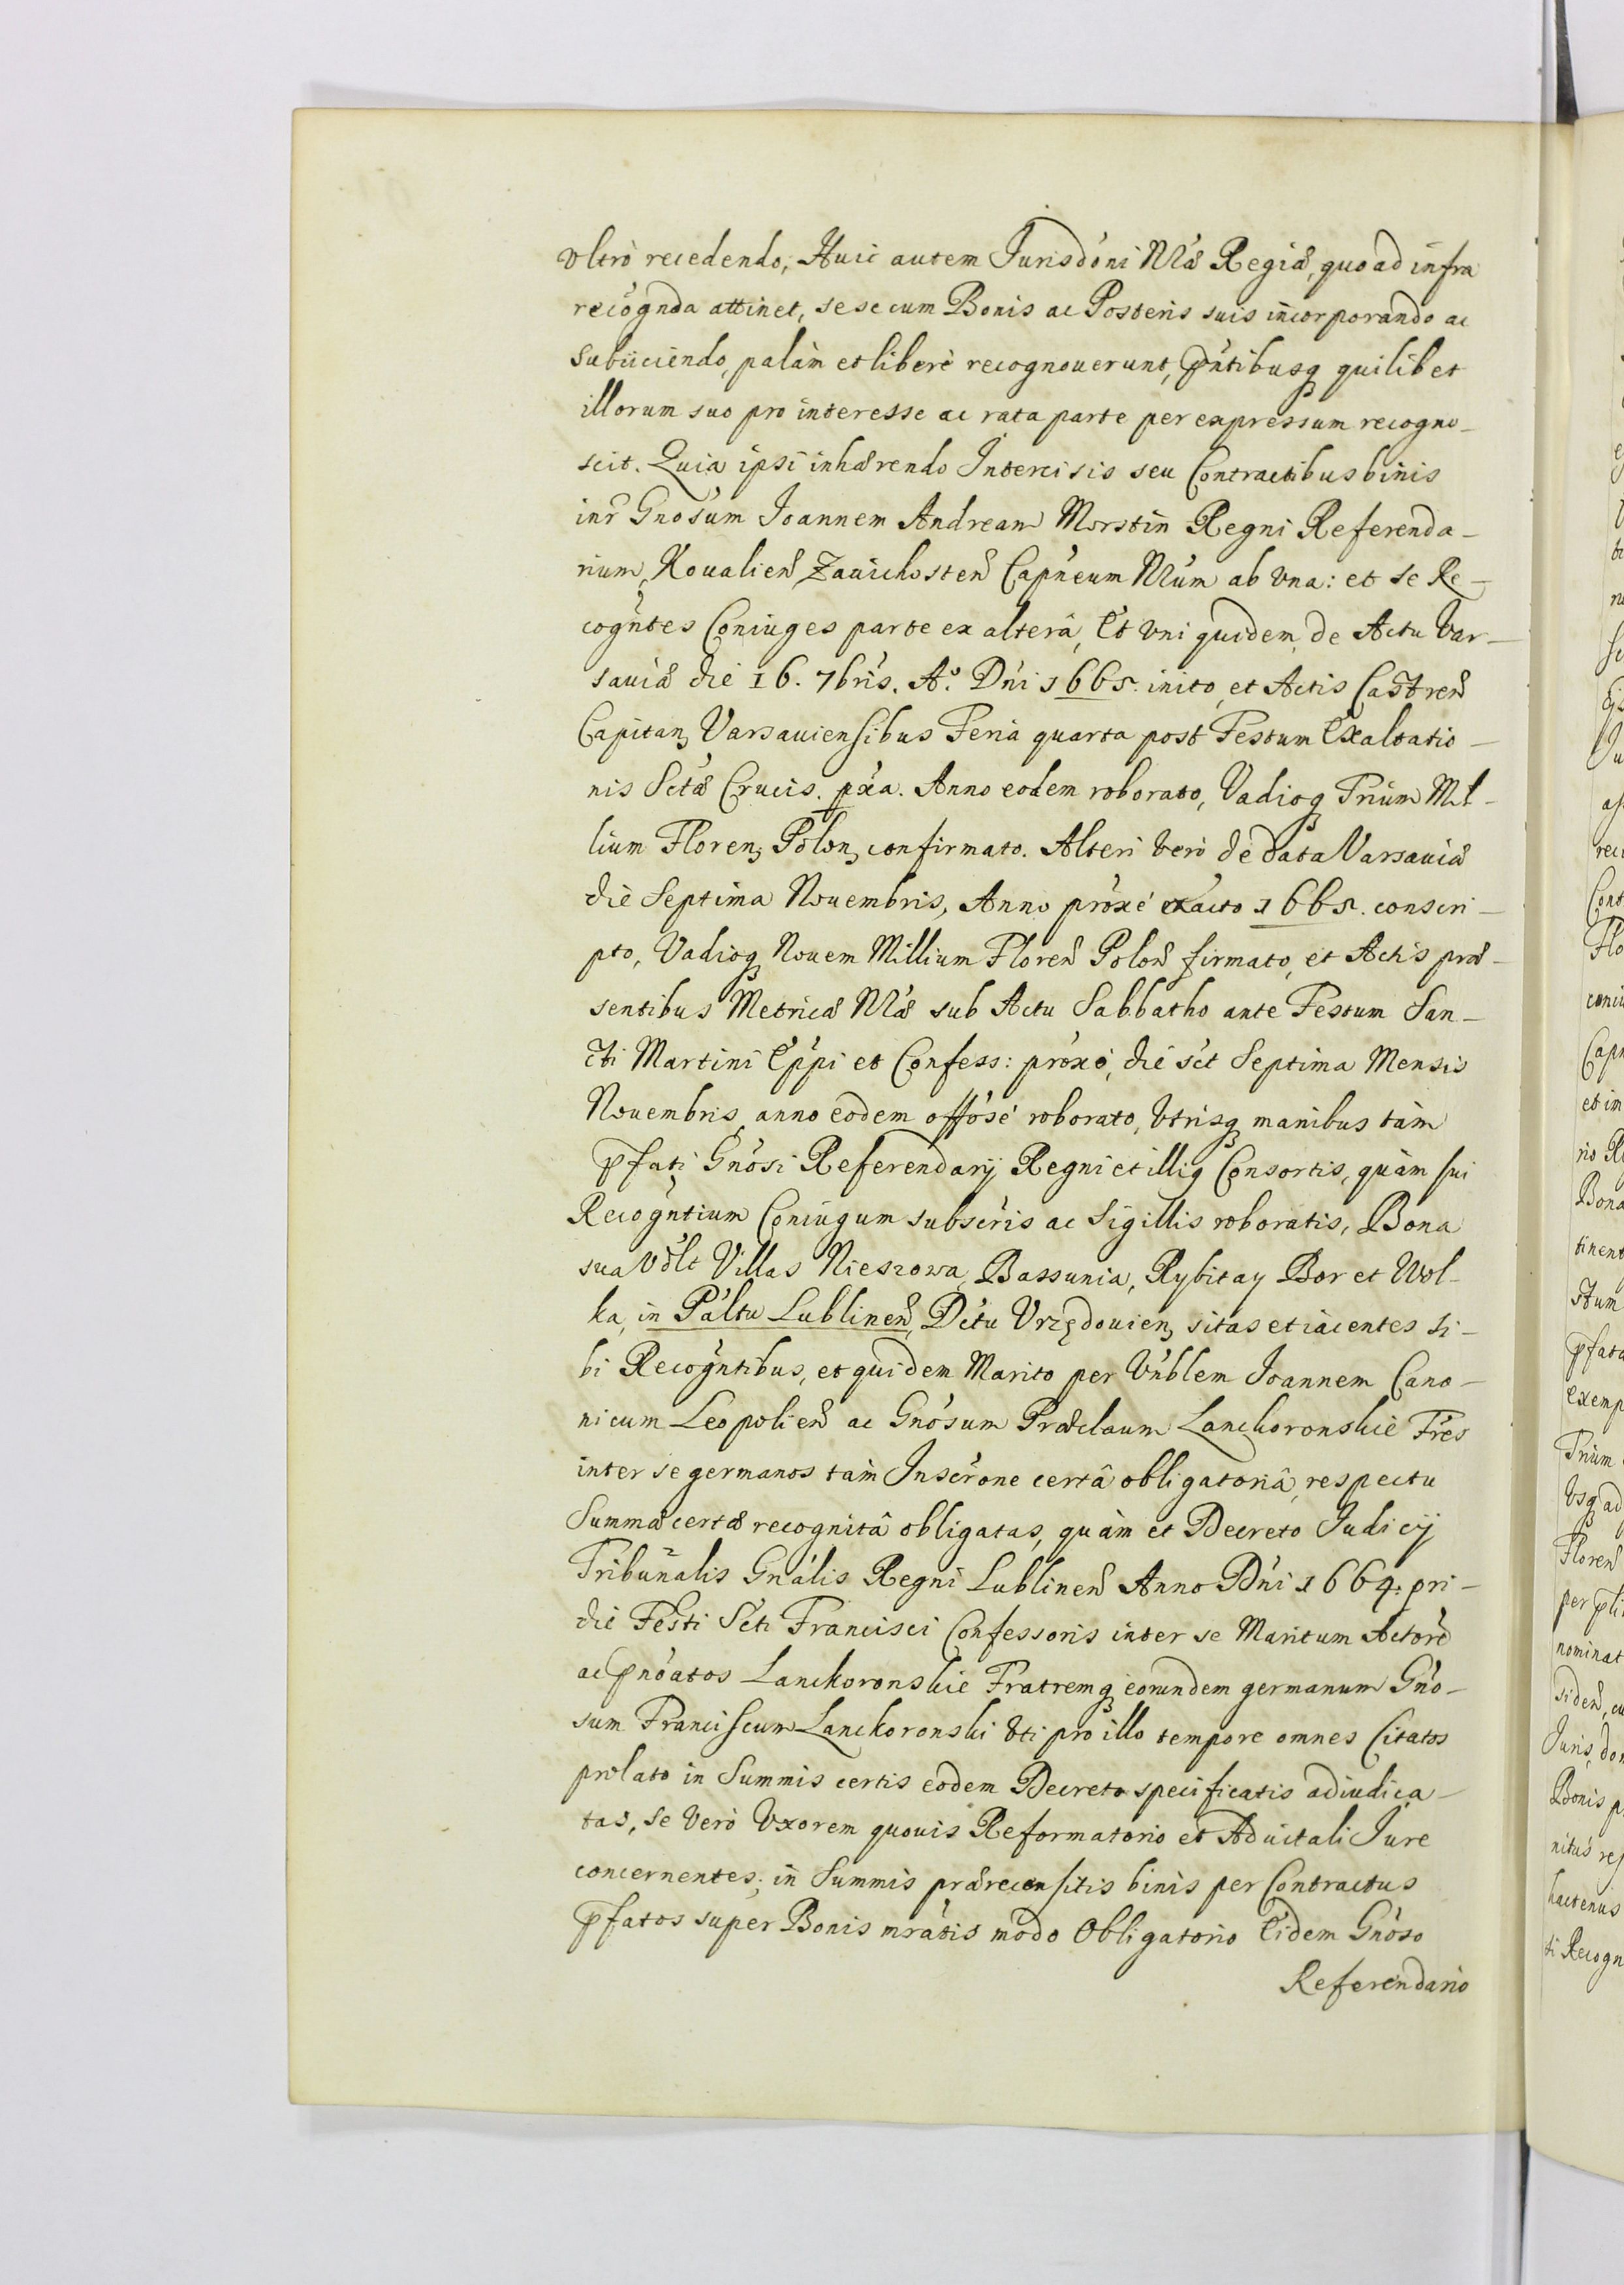 vltrò recedendo, Huic autem Jurisdóni Nrǽ Regiæ, quo ad infra
recógnda attinet, sese cum Bonis ac Posteris suis incorporando ac
subiiciendo, palàm et liberè recognouerunt, p̃ntibusq₃ quilibet
illorum suo pro interesse ac rata parte per expressum recogno-
scit. Quia ipsi inhærendo Intercisis seu Contractibus binis
inr̃ Gnósum Joannem Andream Morstin Regni Referenda-
rium, Koualien̄ Zauichosten̄ Capńeum Nrúm ab vna: et se Re-
cogńtes Coniuges parte ex alterâ, Et vni quidem, de Actu Var-
sauiæ die 16. 7brís. A.º Dńi 1665. inito, et Actis Castren̄
Capitan₃ Varsauiensibus Feria quarta post Festum Exaltatio-
nis Sctæ Crucis. px́a. Anno eodem roborato, Vadioq₃ Trium Mil-
lium Floren₃ Polon₃ confirmato. Alteri verò de data Varsauiæ
die Septima Nouembris, Anno próxé exacto 1665. conscri-
pto, Vadioq₃ Nouem Millium Floren̄ Polon̄ firmato, et Actis præ-
sentibus Metricæ Nrǽ sub Actu Sabbatho ante Festum San-
cti Martini Eṕpi et Confess: próxó, die sćt Septima Mensis
Nouembris, anno eodem offósé roborato, vtrisq₃ manibus tàm
p̃fati Gnósi Referendarij Regni et illiq Consortis, quàm sui
Recogńtium Coniugum subscŕis ac Sigillis roboratis, Bona
sua vdĺt Villas Nieszowa, Bassunia, Rybitay Bor et Wol-
ka, in Páltu Lublinen̄, Dćtu Vrzędouien₃ sitas et iacentes si-
bi Recogńtibus, et quidem Marito per Vńblem Joannem Cano-
nicum Leopolien̄ ac Gnósum Prædlaum Lanckoronskie Frés
inter se germanos tàm Inscŕone certâ obligatoriâ, respectu
Summæ certæ recognitâ obligatas, quàm et Decreto Judicij
Tribunalis Gnális Regni Lublinen̄ Anno Dńi 1664. pri-
die Festi Scti Francisci Confessoris inter se Maritum Actorē
ac p̃nóatos Lanckoronskie Fratremq₃ eorundem germanum Gnó-
sum Franciscum Lanckoronski vti pro illo tempore omnes Citatos
prolato in Summis certis eodem Decreto specificatis adiudica-
tas, se verò Vxorem quouis Reformatorio et Aduitali Jure
concernentes; in Summis præcensitis binis per Contractus
p̃fatos super Bonis mrátis modo Obligatorio Eidem Gnóso
Referendario